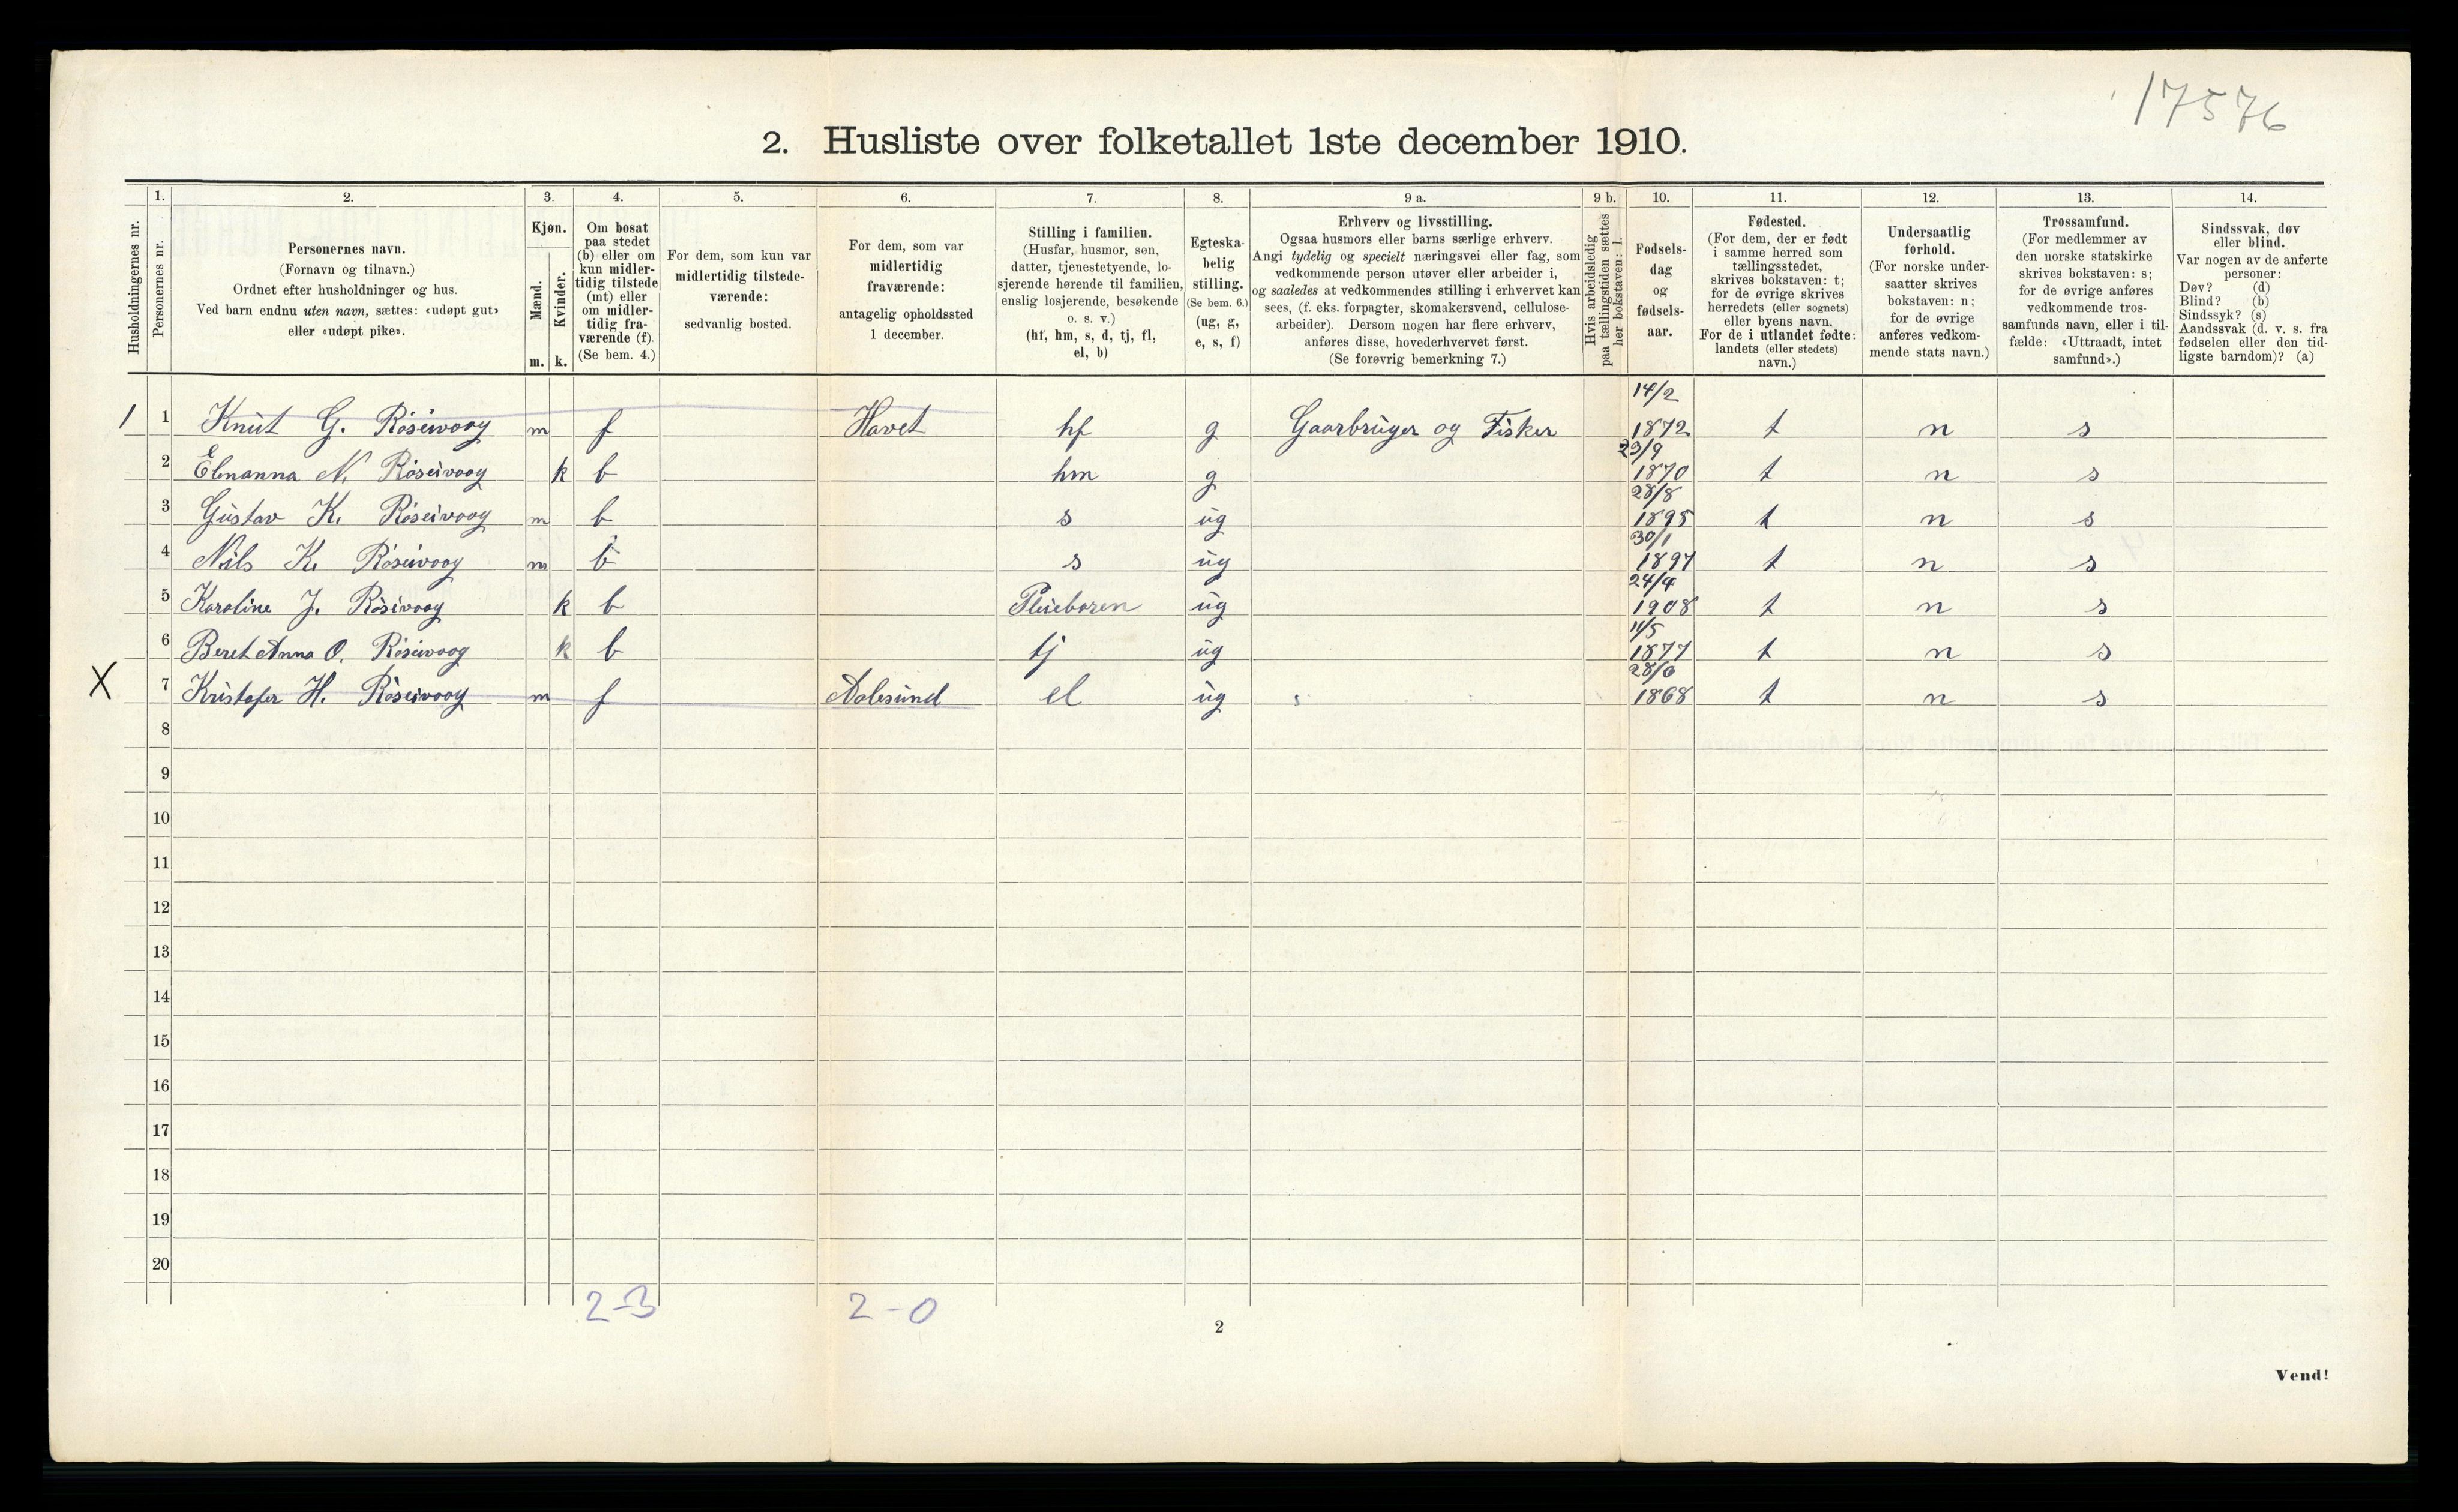 17576
2. Husliste over folketallet 1ste december 1910.
Husholdningernes nr.
1. Personernes nr.
2. Personernes navn. (Fornavn og tilnavn.) Ordnet efter husholdninger og hus. Ved barn endnu uten navn, sættes: «udøpt gut» eller «udøpt pike».
3. Kjøn. Mænd. m. Kvinder. k.
4. Om bosat paa stedet (b) eller om kun midlertidig tilstede (mt) eller om midlertidig fraværende (f). (Se bem. 4.)
5. For dem, som kun var midlertidig tilstedeværende: sedvanlig bosted.
6. For dem, som var midlertidig fraværende: antagelig opholdssted 1 december.
7. Stilling i familien. (Husfar, husmor, søn, datter, tjenestetyende, losjerende hørende til familien, enslig losjerende, besøkende o. s. v.) (hf, hm, s, d, tj, fl, el, b)
8. Egteskabelig stilling. (Se bem. 6.) (ug, g, e, s, f)
9 a. Erhverv og livsstilling. Ogsaa husmors eller barns særlige erhverv. Angi tydelig og specielt næringsvei eller fag, som vedkommende person utøver eller arbeider i, og saaledes at vedkommendes stilling i erhvervet kan sees, (f. eks. forpagter, skomakersvend, cellulosearbeider). Dersom nogen har flere erhverv, anføres disse, hovederhvervet først. (Se forøvrig bemerkning 7.)
9 b. Hvis arbeidsledig paa tællingstiden sættes her bokstaven: l.
10. Fødselsdag og fødselsaar.
11. Fødested. (For dem, der er født i samme herred som tællingsstedet, skrives bokstaven: t; for de øvrige skrives herredets (eller sognets) eller byens navn. For de i utlandet fødte: landets (eller stedets) navn.)
12. Undersaatlig forhold. (For norske undersaatter skrives bokstaven: n; for de øvrige anføres vedkommende stats navn.)
13. Trossamfund. (For medlemmer av den norske statskirke skrives bokstaven: s; for de øvrige anføres vedkommende trossamfunds navn, eller i tilfælde: «Uttraadt, intet samfund».)
14. Sindssvak, døv eller blind. Var nogen av de anførte personer: Døv? (d) Blind? (b) Sindssyk? (s) Aandssvak (d. v. s. fra fødselen eller den tidligste barndom)? (a)
1 1 Knut G. Röseivoog m f Havet hf g Gaarbruger og Fisker 14/2 1872 t n s
2 Elnanna N. Röseivoog k b hm g 23/9 1870 t n s
3 Gustav K. Röseivoog m b s ug 28/8 1895 t n s
4 Nils K. Röseivoog m b s ug 30/1 1897 t n s
5 Karoline J. Röseivoog k b Pleiebaren ug 24/4 1908 t n s
6 Beret Anna O. Röseivoog k b tj ug 11/5 1877 t n s
X 7 Kristofer H. Röseivoog m f Aalesund el ug 28/6 1868 t n s
8
9
10
11
12
13
14
15
16
17
18
19
20
2-3 2-0
2
Vend!